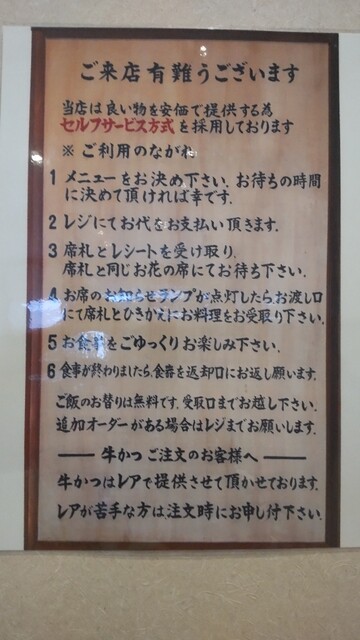 ご来店有難うございます
当店は良い物を安価で提供する為
セルフサービス方式を採用しております
※ ご利用のながれ
1 メニューをお決め下さい。お待ちの時間
に決めて頂ければ幸です。
2 レジにてお代をお支払い頂きます。
3 席札とレシートを受け取り、
席札と同じお花の席にてお待ち下さい。
4 お席のお知らせランプが点灯したらお渡し口
にて席札とひきかえにお料理をお受取り下さい。
5 お食事をごゆっくりお楽しみ下さい。
6 食事が終わりましたら、食器を返却口にお返し願います。
ご飯のお替りは無料です。受取口までお越し下さい。
追加オーダーがある場合はレジまでお願いします。
牛かつご注文のお客様へ
牛かつはレアで提供させて頂かせております。
レアが苦手な方は、注文時にお申し付下さい。